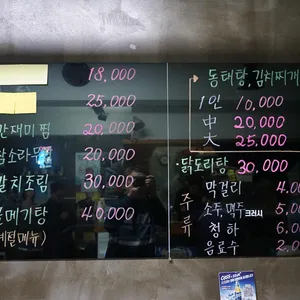 18,000
25,000
간재미 찜 20,000
20,000
갈치조림 30,000
물메기탕 40,000
(계절메뉴)
동태탕, 김치찌개
1인 10,000
中 20,000
大 25,000
· 닭도리탕 30,000
주류
막걸리 4.0
소주, 맥주 크러시 5.0
청하 6.0
음료수 2.0